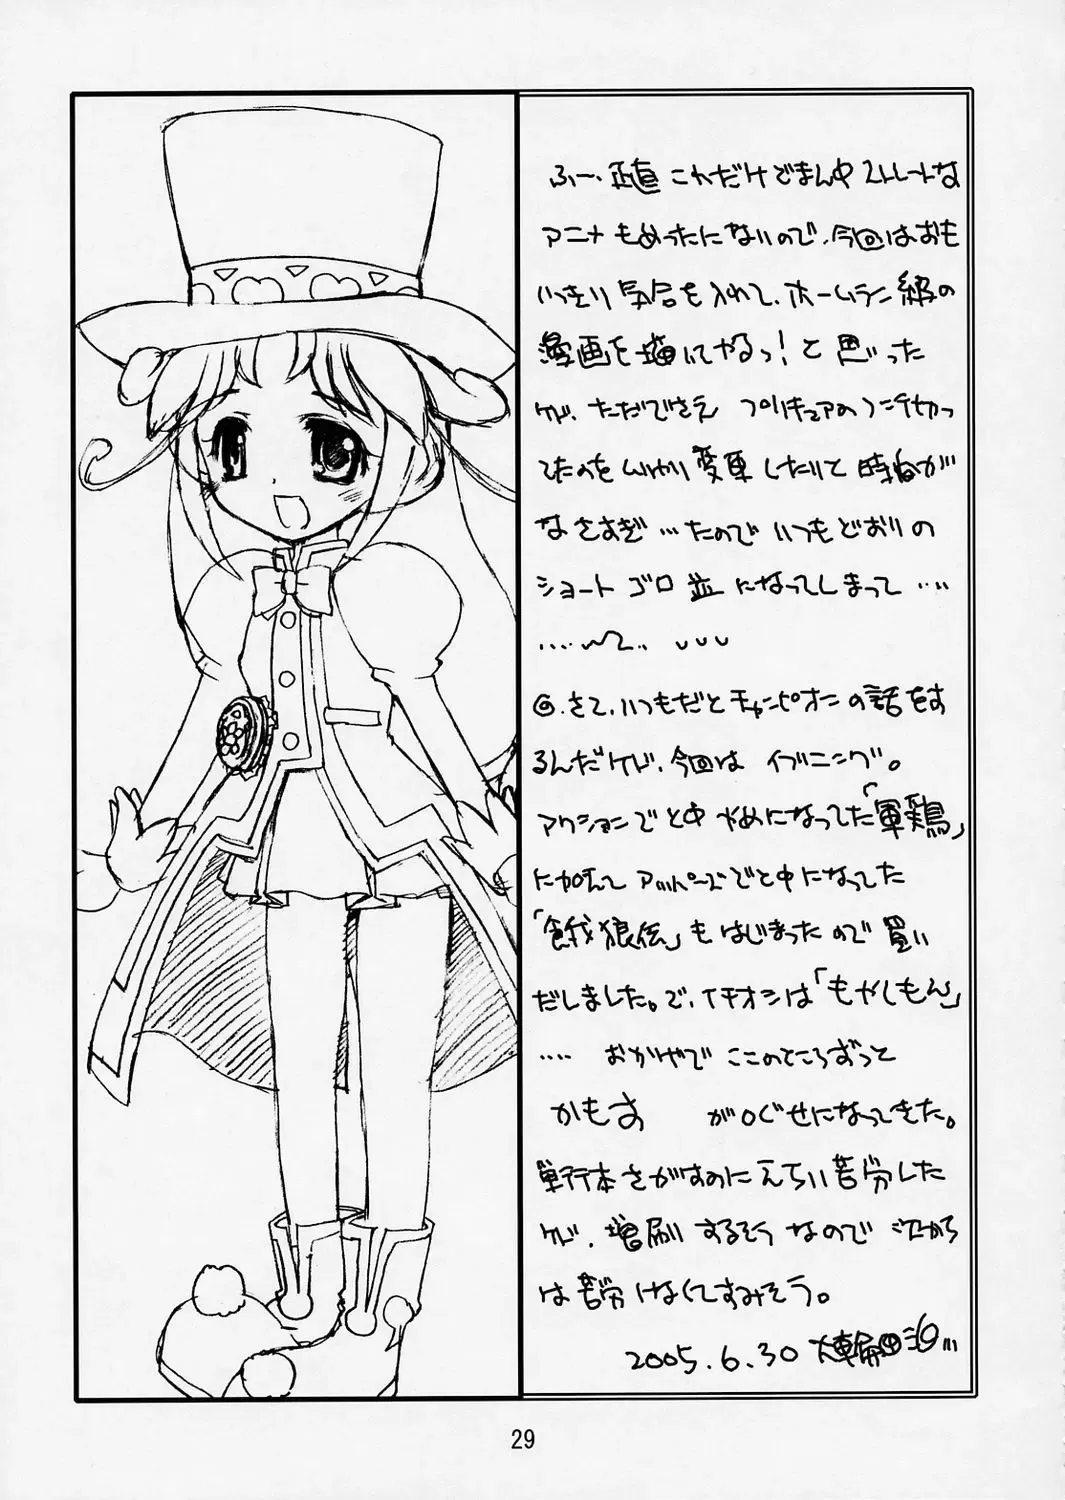 ふー、正直 これだけどまん中ストレートな
アニメもめったにないので、今回はおも
いっきり気合を入れて、ホームラン級の
漫画を描いてやるっ!と思った
けど、ただでさえ プリキュアの
してたのを 変更したりして時間が
なさすぎ…たのでいつもどおりの
ショートゴロ並になってしまって……
……
◎.さて、いつもだとチャンピオンの話をす
るんだけど、今回はイブニング。
アクションでと中やめになってた「軍鶏」
に加えてアッパーズでと中になってた
「餓狼伝」もはじまったので買い
だしました。で、イチオシは「もやしもん」
…. おかげで ここのところずっと
かもす が口ぐせになってきた。
単行本さがすのにえらい苦労した
けど、増刷するそうなので 次から
は苦労はなくてすみそう。
2005.6.30 大輪田
29